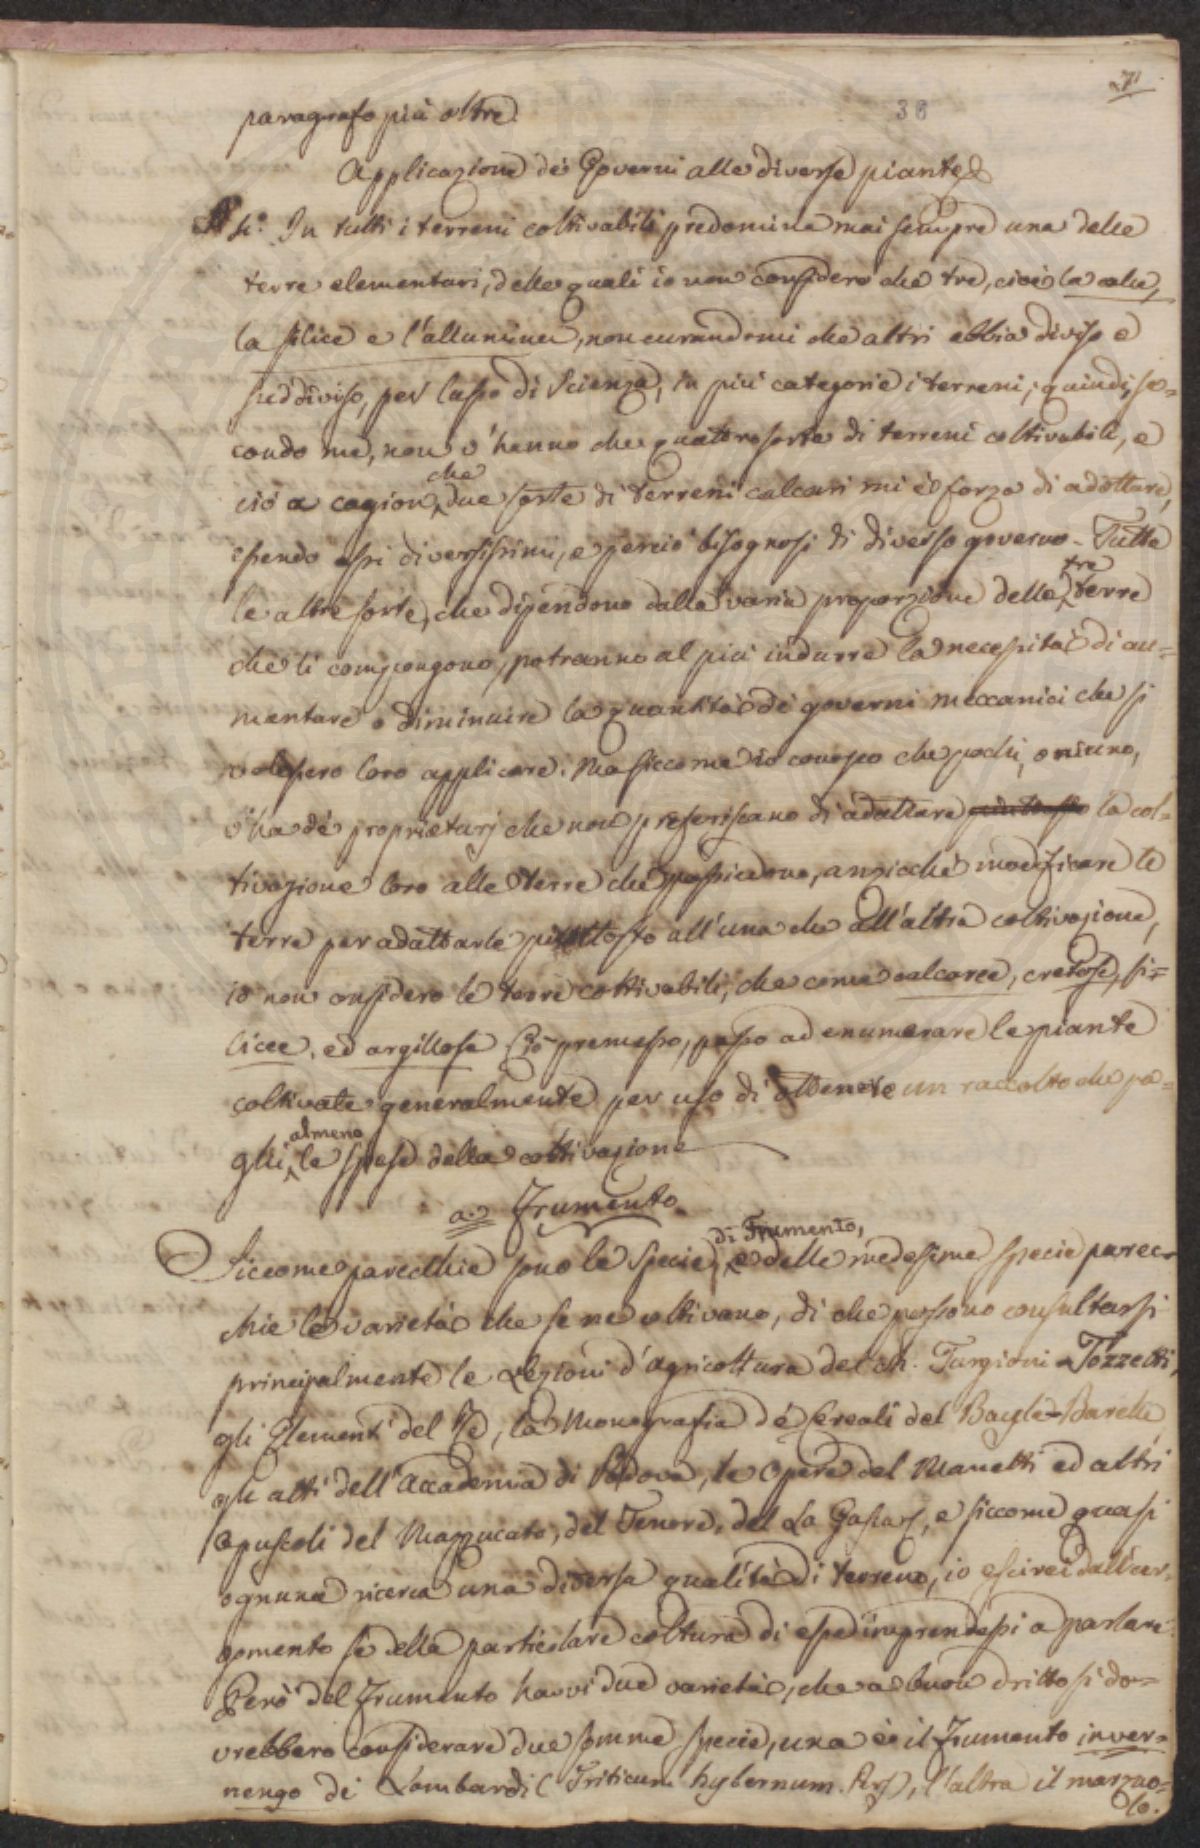 71
38
paragrafo più oltre.
Applicazione dè Governi alle diverse piante
In tutti i terreni coltivabili predomina mai sempre una delle
terre elementari, delle quali io non considero che tre, cioè la calce,
la silice e l'allumina, non curandomi che altri abbia diviso e
suddiviso, per lusso di Scienza, in più categorie i terreni; quindi, se=
condo me, non v'hanno che quattro sorte di terreni coltivabili, e
ciò a cagion, che due sorte di terreni calcari mi è forza di adottare,
essendo essi diversissimi, e perciò bisognosi di diverso governo - Tutte
le altre sorte, che dipendono dalla varia proporzione delle tre terre
che li compongono, potranno al più indurre la necessità di au=
mentare o diminuire la quantità dè governi meccanici che si
volessero loro applicare. Ma siccome io conosco che pochi, o niuno,
v'ha dè proprietarj che non preferiscano di adattare piuttosto la col=
tivazione loro alle terre che possiedono, anzicchè modificare le
terre per adattarle piuttosto all'una che all'altra coltivazione,
io non considero le terre coltivabili, che come calcaree, cretose, si=
licee, ed argillose. Ciò premesso, passo ad enumerare le piante
coltivate generalmente per uso di ottenere un raccolto che pa=
ghi almeno le spese della coltivazione
a. Frumento.
Siccome parecchie sono le specie di Frumento, e delle medesime specie parec=
chie le varietà che se ne coltivano, di che possono consultarsi
principalmente le Lezioni d'agricoltura del ch. Targioni Tozzetti,
gli Elementi del Re, la Monografia dè Cereali del Bayle-Barelle
gli atti dell'Accademia di Padova, le Opere del Manetti ed altri
Opuscoli del Mazzucato, del Tenore, del La Gasca, e siccome quasi
ognuna ricerca una diversa qualità di terreno, io escirei dall'ar=
gomento se della particolare coltura di esse imprendessi a parlare.
Però del Frumento havvi due varietà, che a buon dritto si do=
vrebbero considerare due somme specie, una è il Frumento inver=
nengo di Lombardi (Triticum hybernum. ), l'altra il marzuo=
lo.